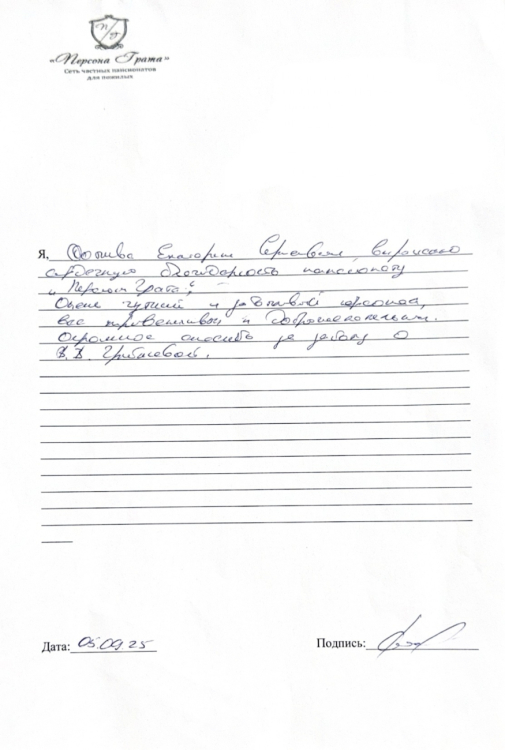 «Персона Грата»
Сеть частных пансионатов
для пожилых
Я, Екатерина Сергеевна, выражаю
сердечную благодарность пансионату
„Персона Грата“,
Очень чуткий и заботливый персонал,
все приветливы и доброжелательны.
Огромное спасибо за заботу о
Грибачевой.
Дата: 05.09.25
Подпись: